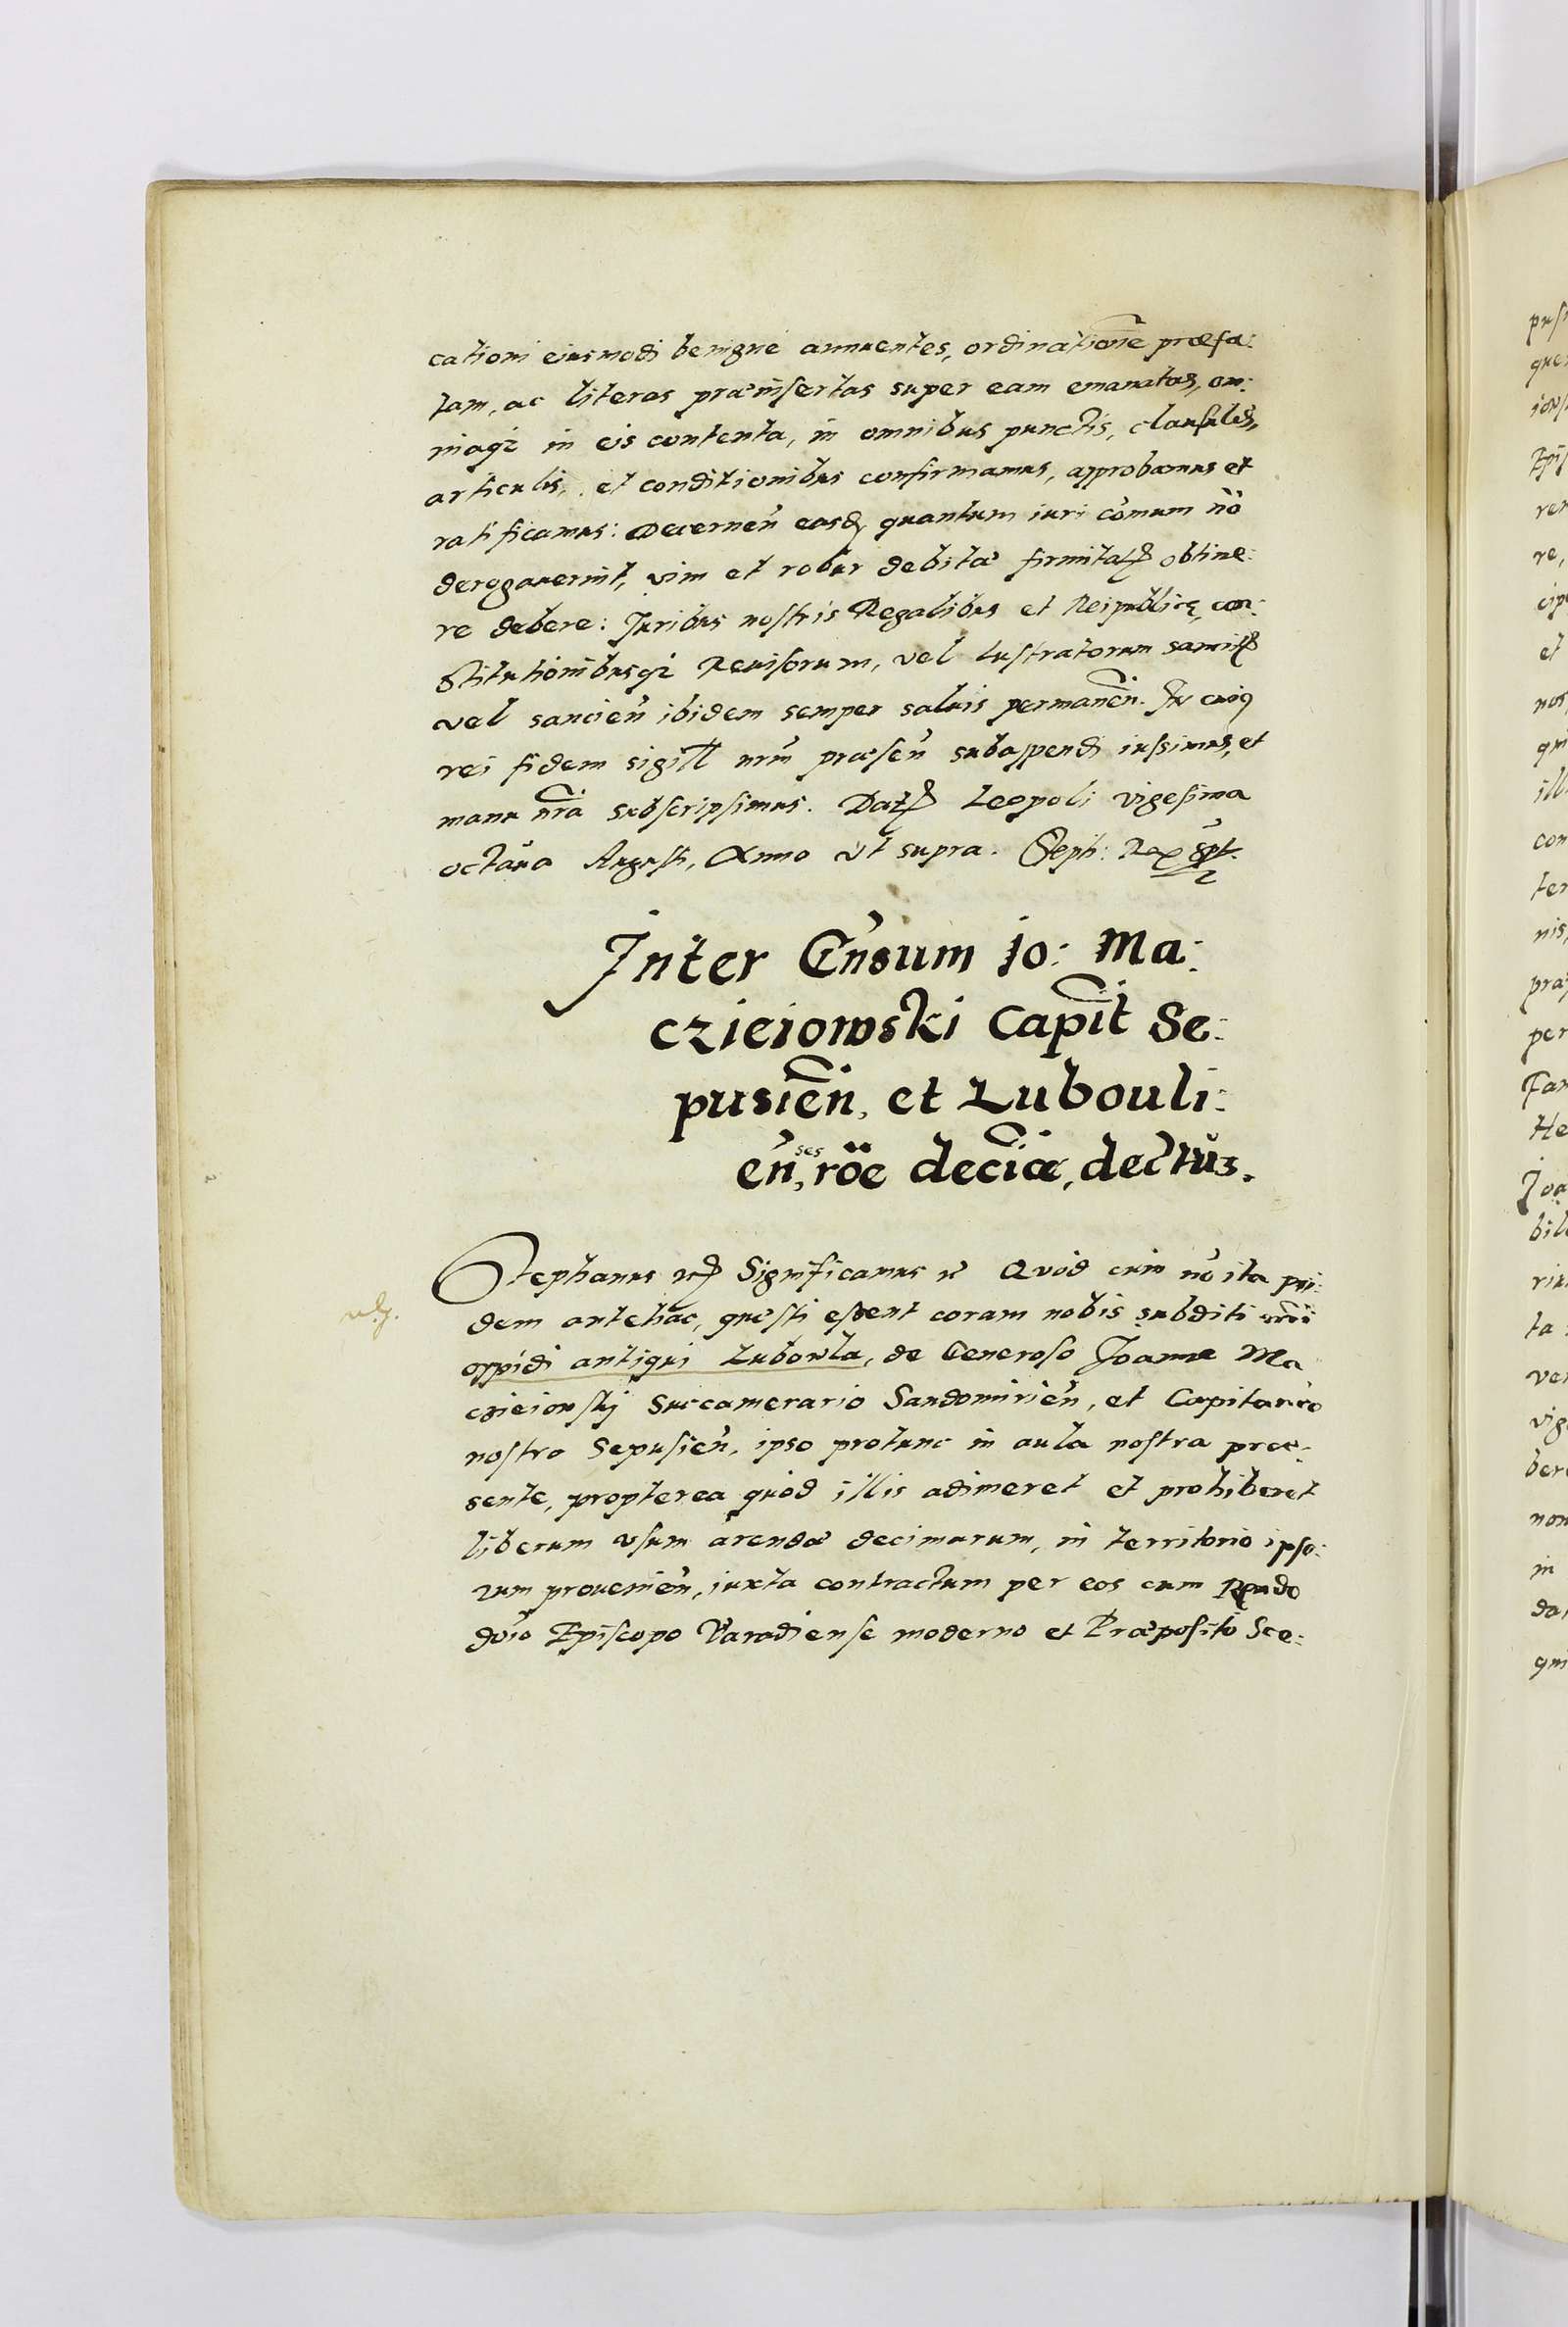 cationi eiusmodi benigne annuentes, ordinationē præfa:
tam, ac literas præinsertas super eam emanatas, om:
niaqȝ in eis contenta, in omnibus punctis, clausulis,
articulis, et conditionibus confirmamus, approbamus et
ratificamus: Decernen̄ easdꝫ quantum iuri cōmum nō
derogauerint, vim et robur debitæ firmitatꝭ obtine:
re debere: Juribus nostris Regalibus et Reipublicę, con:
stitutionibusqȝ Reuisorum, vel lustratorum sancitꝭ
vel sancien̄ ibidem semper saluis permanen̄. In cuiꝯ
rei fidem sigill nr̄m præsen̄ subappendi iussimus, et
manu nr̄a subscripsimus. Datꝭ Leopoli vigesima
octaua Augusti, Anno vt supra. Steph: Rex spt.
Inter Gn̄sum Jo: Ma:
czieiowski Capit̄ Se:
pusien̄, et Lubouli:
en̄,ses rōe deciæ, dectūȝ.
Stephanus Significamus Quod cum nō ita pri:
dem antehac, questi essent coram nobis subditi nr̄i
oppidi antiqui Lubowla, de Generoso Joanne Ma
czieiowskj Succamerario Sandomirien̄, et Capitaneo
nostro Sepusien̄, ipso protunc in aula nostra præ:
sente, propterea quòd illis adimeret et prohiberet
liberum vsum arendæ decimarum, in territorio ipso:
rum prouenien̄, iuxta contractum per eos cum Rendo
dn̄o Episcopo Varadiense moderno et Præposito Sce: